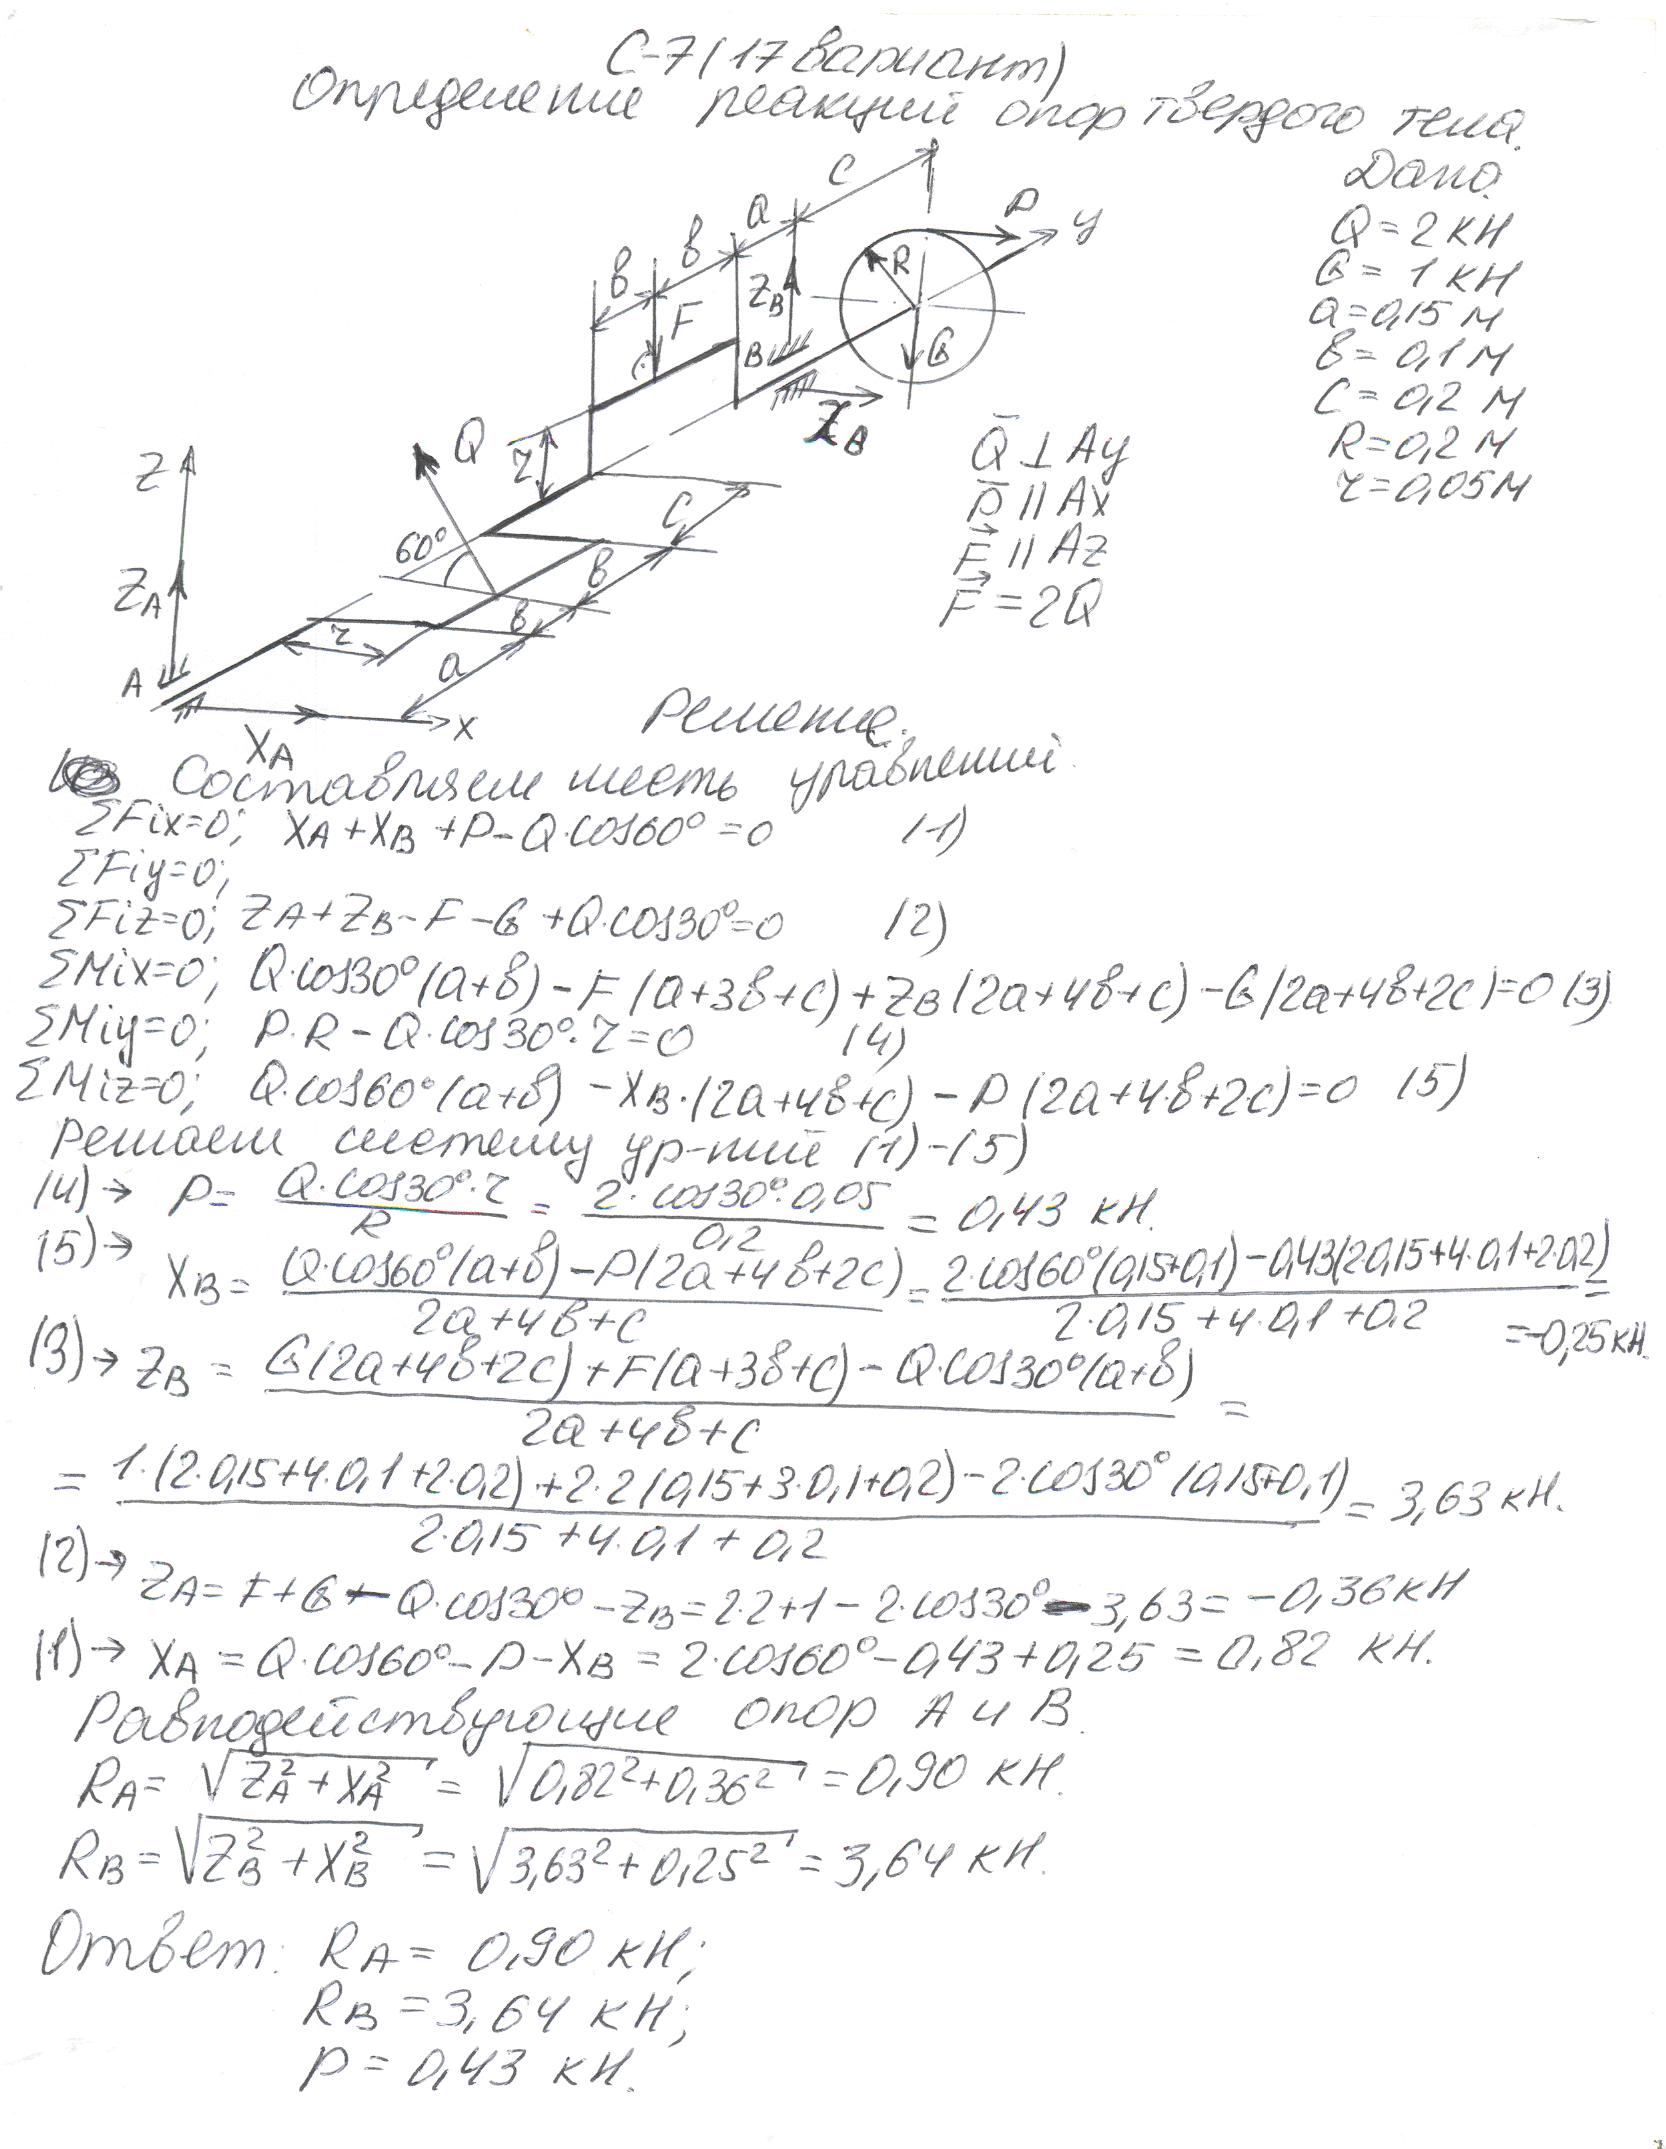 С-7 (17 вариант)
Определение реакций опор твердого тела.
Дано:
Q = 2 кН
G = 1 кН
a = 0,15 м
в = 0,1 м
c = 0,2 м
R = 0,2 м
r = 0,05 м
c
a
в
в
P
y
R
F
ZB
B
G
XB
Q
r
Z
60°
c
в
в
ZA
r
a
A
XA
x
Q̄ ⊥ Ay
P̄ || Ax
F⃗ || Az
F⃗ = 2Q⃗
Решение.
Составляем шесть уравнений.
ΣFix=0; XA + XB + P - Q·cos60° = 0 (1)
ΣFiy=0;
ΣFiz=0; ZA + ZB - F - G + Q·cos30° = 0 (2)
ΣMix=0; Q·cos30°(a+в) - F(a+3в+c) + ZB(2a+4в+c) - G(2a+4в+2c) = 0 (3)
ΣMiy=0; P·R - Q·cos30°·r = 0 (4)
ΣMiz=0; Q·cos60°(a+в) - XB·(2a+4в+c) - P(2a+4в+2c) = 0 (5)
Решаем систему ур-ний (1)-(5)
(4)→ P = Q·cos30°·r / R = 2·cos30°·0,05 / 0,2 = 0,43 кН.
(5)→ XB = Q·cos60°(a+в) - P(2a+4в+2c) / 2a+4в+c = 2·cos60°(0,15+0,1) - 0,43(2·0,15+4·0,1+2·0,2) / 2·0,15+4·0,1+0,2 =
= -0,25 кН.
(3)→ ZB = G(2a+4в+2c) + F(a+3в+c) - Q·cos30°(a+в) / 2a+4в+c =
= 1·(2·0,15+4·0,1+2·0,2) + 2·2(0,15+3·0,1+0,2) - 2·cos30°(0,15+0,1) / 2·0,15+4·0,1+0,2 = 3,63 кН.
(2)→ ZA = F + G - Q·cos30° - ZB = 2·2+1 - 2·cos30° - 3,63 = -0,36 кН
(1)→ XA = Q·cos60° - P - XB = 2·cos60° - 0,43 + 0,25 = 0,82 кН.
Равнодействующие опор A и B.
RA = √ZA² + XA² = √0,82² + 0,36² = 0,90 кН.
RB = √ZB² + XB² = √3,63² + 0,25² = 3,64 кН.
Ответ: RA = 0,90 кН;
RB = 3,64 кН;
P = 0,43 кН.